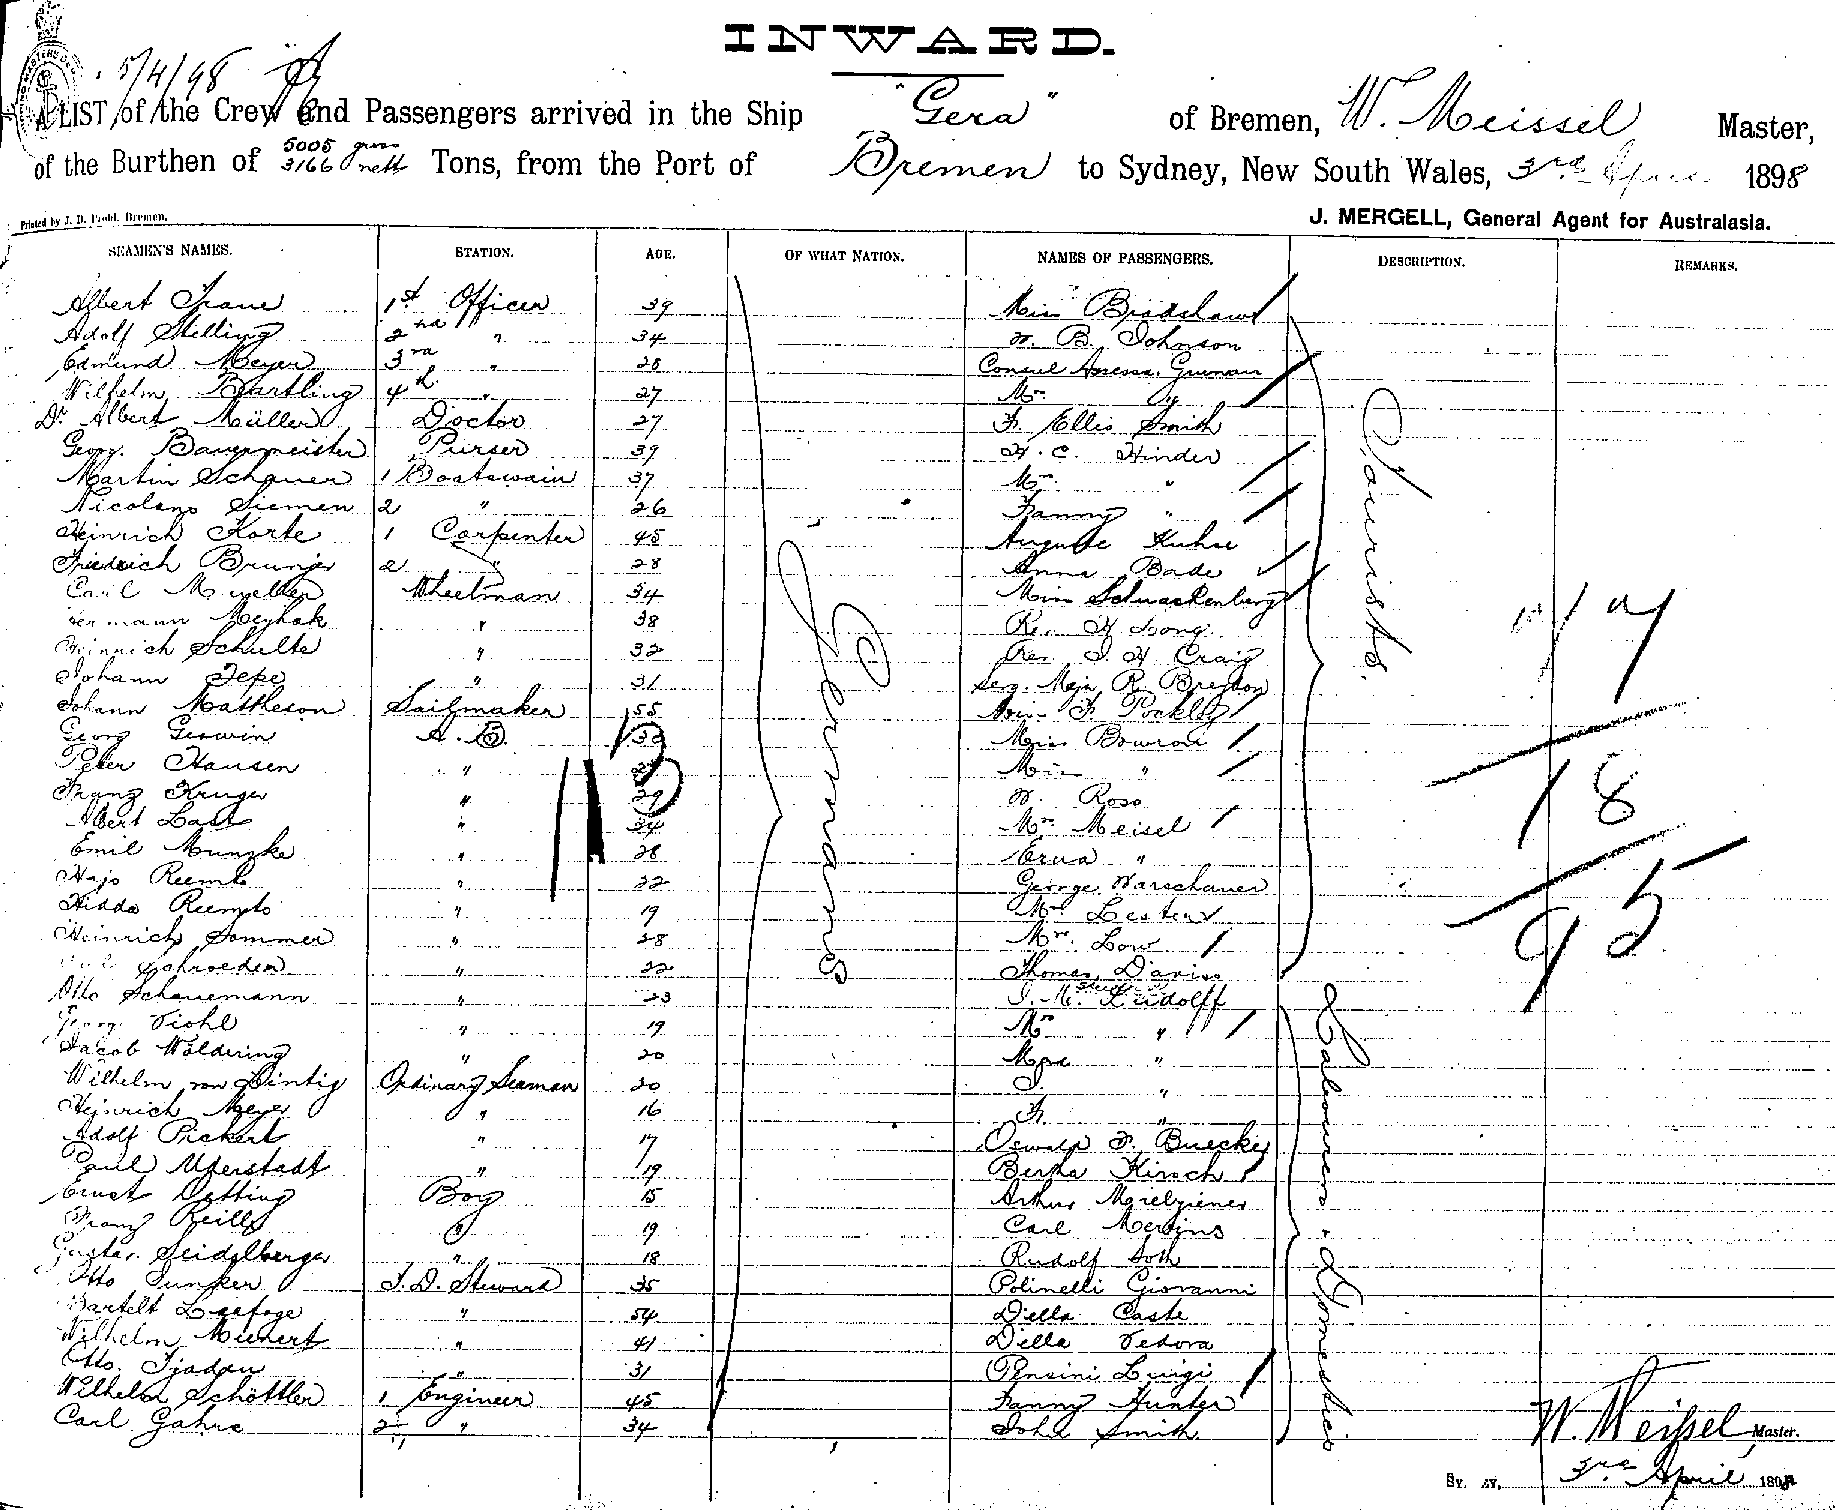 INWARD.
5/4/98
A LIST of the Crew and Passengers arrived in the Ship "Gera" of Bremen, W. Meissel Master,
of the Burthen of 5005 gross 3166 nett Tons, from the Port of Bremen to Sydney, New South Wales, 3rd April 1898
Printed by J. D. Bremen.
J. MERGELL, General Agent for Australasia.
SEAMEN'S NAMES. STATION. AGE. OF WHAT NATION. NAMES OF PASSENGERS. DESCRIPTION. REMARKS.
Albert Traue 1st Officer 39 Miss Bradshaw
Adolf Stelling 2nd " 34 W. B. Johnson
Edmund Meyer 3rd " 28 Consul
Wilhelm Bartling 4th " 27 Mrs "
Dr Albert Müller Doctor 27 F. Ellis Smith
Georg Bauermeister Purser 39 H. C. Hinder
Martin Schauer 1 Boatswain 37 Mrs "
Nicolaus Siemen 2 " 26 Fanny "
Heinrich Korte 1 Carpenter 45 Auguste Kuhse
Friedrich 2 " 28 Anna Bade
Carl Mueller Wheelman 34 Miss Schwackenberg
Hermann Meyhak " 38 Re. H Long
Heinrich Schulte " 32 Rev. J. H. Craig
Johann Tepe " 31 Serg. Major R.
Johann Matheson Sailmaker 55 Miss F. Pockley
Georg Gerwin A. B. Miss Bowron
Peter Hansen " Miss "
Franz Kruger " 29 W. Ross
Albert " 34 Mrs Meisel
Emil Munzke " 28 Erna "
Hajo Reemts " 22 George Warschauer
Hidde Reemts " 19 Mrs Lester
Heinrich Sommer " 28 Mrs. Low
Schroeder " 22 Thomas Davis
Otto Schauemann " 23 J. M. Ludolff
Georg Viohl " 19 Mrs "
Jacob Woldering " 20 "
Wilhelm von Ordinary Seaman 20 J. "
Heinrich Meyer " 16 F. "
Adolf Pickert " 17 Oswald F. Buecker
Paul " 19 Bertha Hirsch
Ernst Detting Boy 15 Arthur
Franz Reills " 19 Carl Mertins
Gustav Seidelberger " 18 Rudolf Soth
Otto Junker S. D. Steward 35 Polinelli Giovanni
Bartelt " 54 Della Caste
Wilhelm Mienert " 41 Della Vedova
Otto Tjaden " 31 Pensini Luigi
Wilhelm Schöttler 1 Engineer 45 Fanny Hunter
Carl Gahre 2 " 34 John Smith
Germans
Tourists.
Labourers & Domestics
77
18
95
W. Meissel, Master.
3rd April 1898